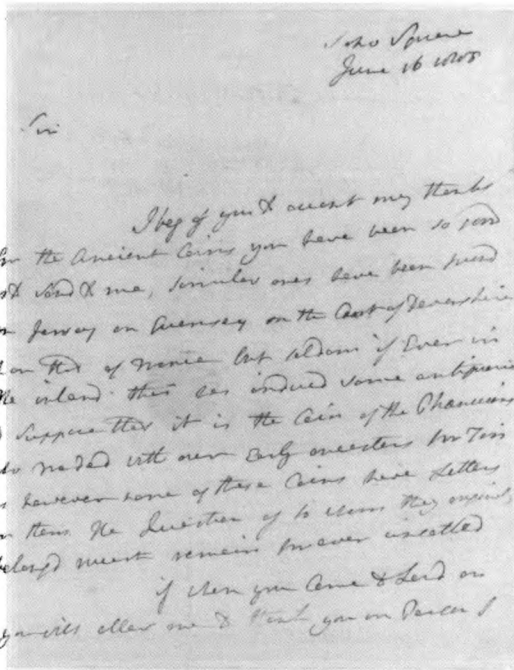 Soho Square
June 16 1808
Sir
I beg of you to accept my thanks
for the Ancient Coins you have been so good
as to send to me, similar ones have been found
in Jersey on Guernsey on the Coast of Devonshire
& on that of but seldom if Ever in
the inland this has induced some antiquaries
to suppose that it is the Coin of the Phœnicians
who traded with our Early ancestors for Tin
as however none of these Coins have Letters
on them the Question of to whom they originally
belong'd must remain for ever unsettled
if when you Come to Lond on
you will allow me to thank you in Person I